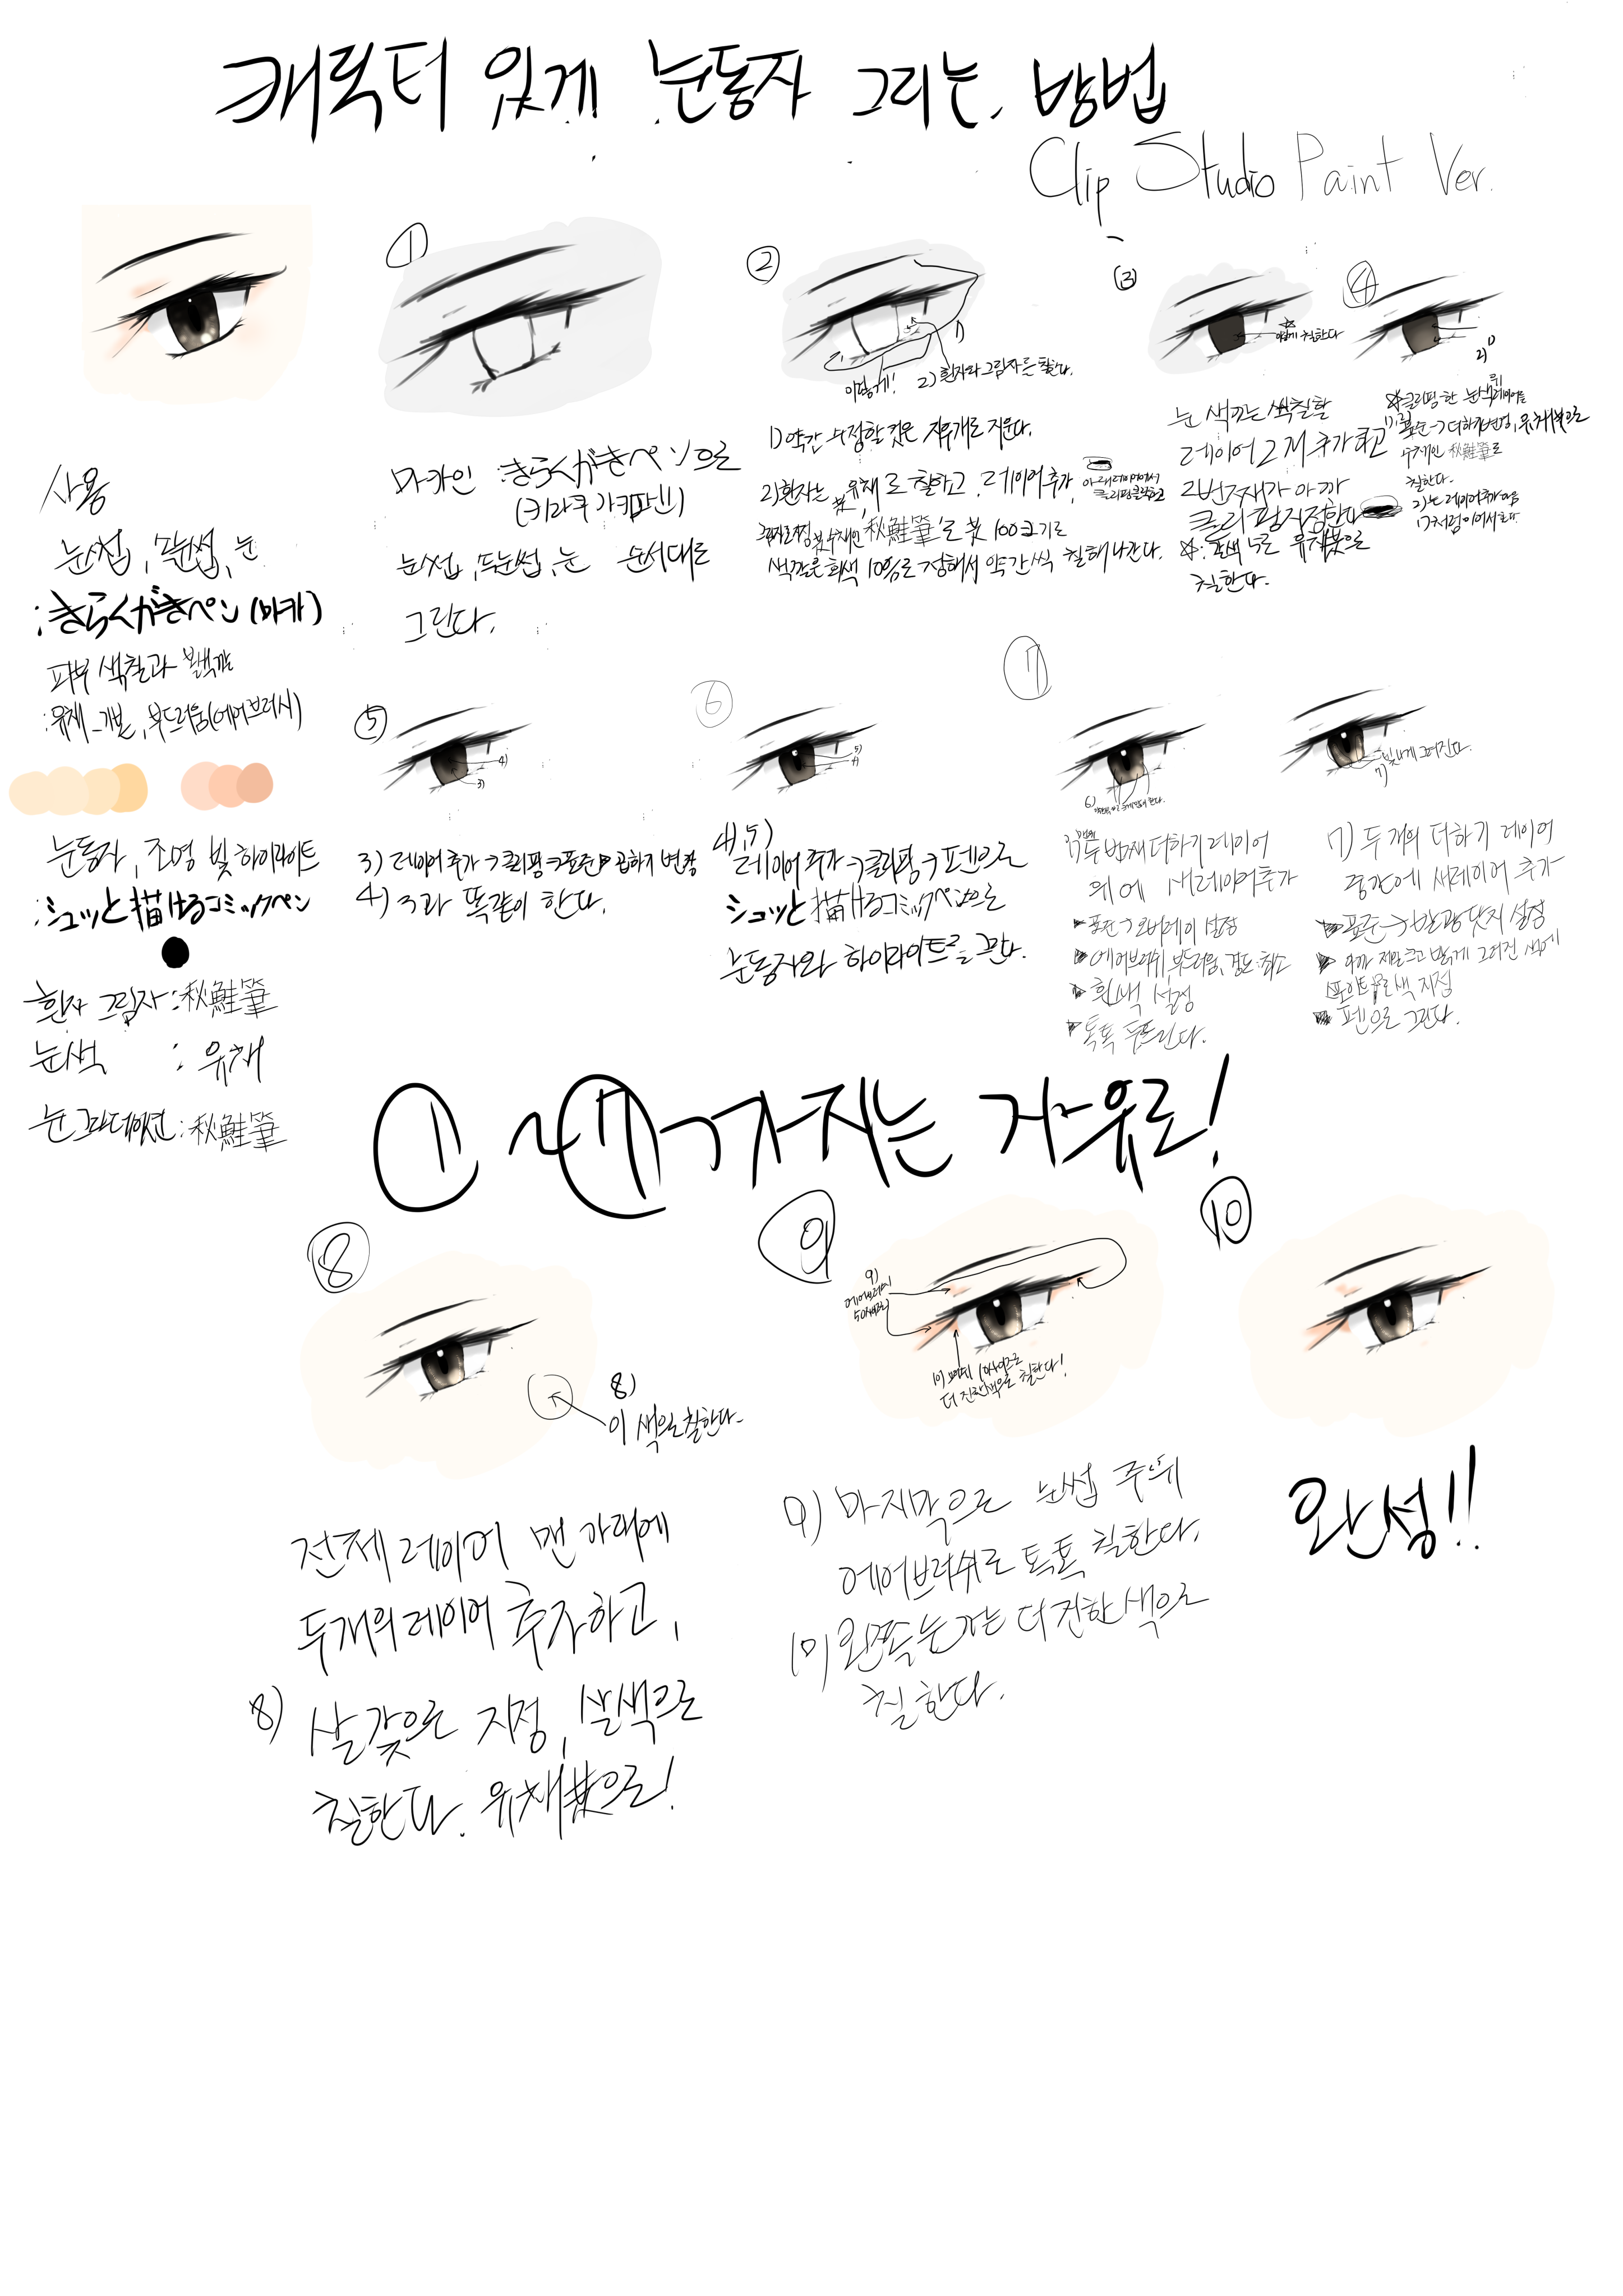 캐릭터 있게 눈동자 그리는 방법
Clip Studio Paint Ver.
사용
눈썹, 속눈썹, 눈
: きらくがきペン (마카)
피부 색칠과 볼색깔
: 유채_기본, 부드러움(에어브러시)
눈동자, 조명 빛 하이라이트
: シュッと描けるコミックペン
흰자 그림자 : 秋鮭筆
눈색 : 유채
눈 그라데이션 : 秋鮭筆
①
마카인 : きらくがきペン으로
(키라쿠가키펜)
눈썹, 속눈썹, 눈 순서대로
그린다.
②
1)
이렇게!
2) 흰자와 그림자를 칠한다.
1) 약간 수정할 것은 지우개로 지운다.
2) 흰자는 유채로 칠하고, 레이어 추가,
秋鮭筆'로 붓 100크기로
색깔은 회색 10%로 정해서 약간씩 칠해 나간다.
③
칠한다
눈 색깔은 색칠할
레이어 2개 추가하고
2번째가 아까
클리핑 지정한다
유채붓으로
칠한다.
④
2)
클리핑 한 눈색 레이어를
표준→더하기 변경, 유채붓으로
秋鮭筆로
칠한다.
2)는 레이어 추가
1)처럼 이어서
⑤
4)
3)
3) 레이어 추가→클리핑→표준→곱하기 변경
4) 3과 똑같이 한다.
⑥
5)
4)
4), 5)
레이어 추가→클리핑→펜으로
シュッと描けるコミックペン으로
눈동자와 하이라이트를 그린다.
⑦
6)
두번째 더하기 레이어
위에 새 레이어 추가
표준→오버레이 설정
에어브러쉬 부드러움, 경도 최소
흰색 설정
톡톡 두드린다.
빛나게 그려진다.
7)
7) 두 개의 더하기 레이어
중간에 새 레이어 추가
표준→발광 닷지 설정
아까 제일 크고 밝게 그려진 색에
스포이트로 색 지정
펜으로 그린다.
① ~ ⑦ 까지는 자유로!
⑧
8)
이 색으로 칠한다.
전체 레이어 맨 아래에
두개의 레이어 추가하고,
8) 살갗으로 지정, 살색으로
칠한다. 유채붓으로!
⑨
9)
에어브러쉬
10)
더 진한색으로 칠한다!
9) 마지막으로 눈썹 주위
에어브러쉬로 톡톡 칠한다.
10) 왼쪽 눈가는 더 진한 색으로
칠한다.
⑩
완성!!